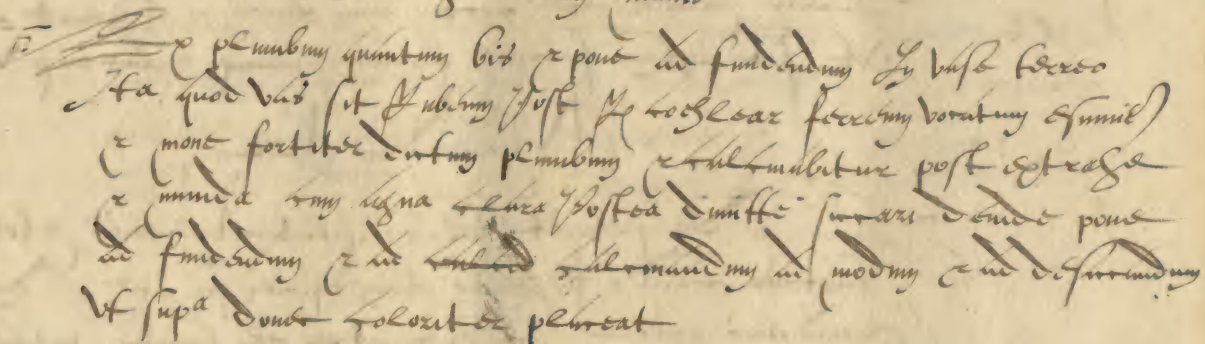 ℞ plumbum quantum bis & pone ad fundendum In vase terreo
Ita quod vas sit Rubeum Post ℞ cochlear ferreum vocatum
& move fortiter dictum plumbum & calcinabitur post extrahe
& munda cum aqua clara Postea dimitte siccari deinde pone
ad fundendum & ad calcinandum ad modum & ad desiccandum
Vt supa donec placeat